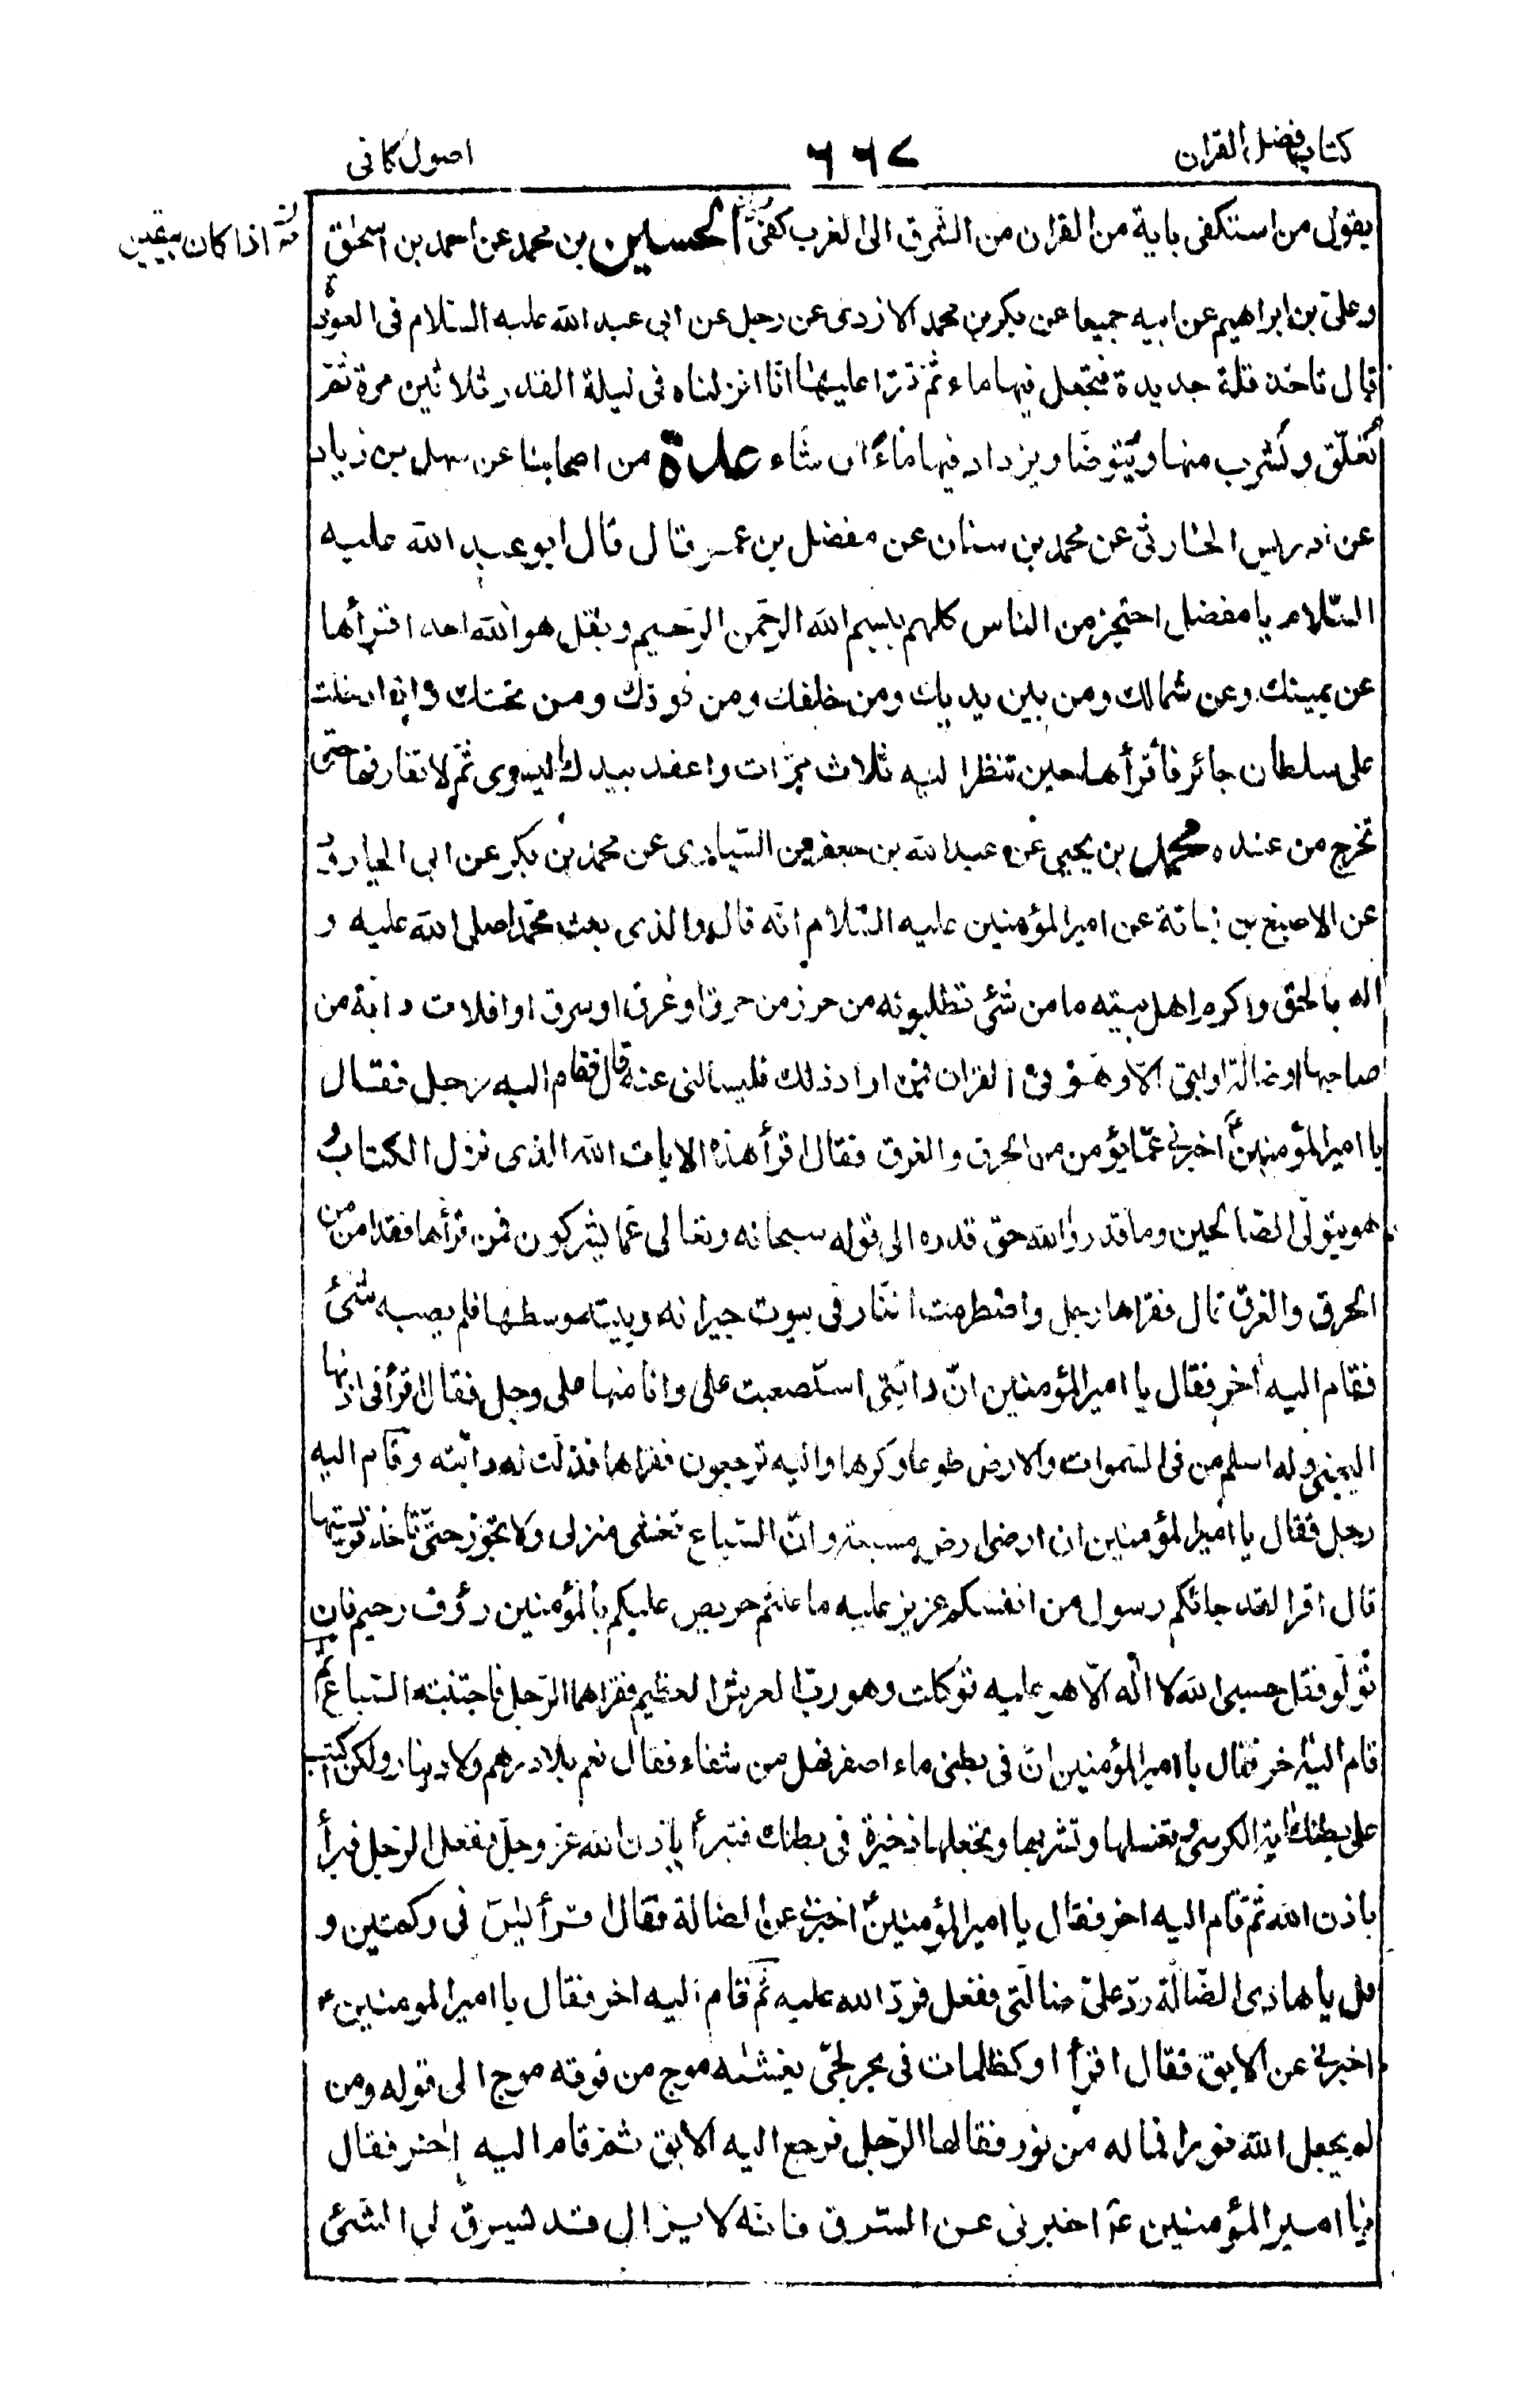 كتاب فضل القران
٦٦٧
اصول كافى
يقول من استكفى باية من القران من الشرق الى الغرب كفى الحسين بن محمد عن احمد بن اسحق
اذا كان بيقين
وعلى بن ابراهيم عن ابيه جميعا عن بكر بن محمد الازدى عن رجل عن ابى عبد الله عليه السّلام فى العوذة
قال تاخذ قلة جديدة فتجعل فيها ماء ثم تقرا عليها انّا انزلناه فى ليلة القدر ثلاثين مرة ثم
تعلّق وتشرب منها وتتوضّا ويزداد فيها ماء ان شاء عدة من اصحابنا عن سهل بن زياد
عن ادريس الحارثى عن محمد بن سنان عن مفضل بن عمر قال قال ابو عبد الله عليه
السّلام يا مفضل احتجز من الناس كلهم ببسم الله الرّحمن الرّحيم وبقل هو الله احد اقرأها
عن يمينك وعن شمالك ومن بين يديك ومن خلفك ومن فوقك ومن تحتك واذا دخلت
على سلطان جائر فأقرأها حين تنظر اليه ثلاث مرّات واعقد بيدك اليسرى ثم لا تفارقها حتى
تخرج من عنده محمد بن يحيى عن عبد الله بن جعفر عن السّيارى عن محمد بن بكر عن ابى الجارود
عن الاصبغ بن نباتة عن امير المؤمنين عليه السّلام انّه قال والذى بعث محمّدا صلى الله عليه و
اله بالحق واكرم اهل بيته ما من شئ تطلبونه من حرز من حرق او غرق او سرق او افلات دابّة من
صاحبها او ضالّة او ابق الّا وهو فى القران فمن اراد ذلك فليسالنى عنه قال فقام اليه رجل فقال
يا امير المؤمنين اخبرنى عمّا يؤمن من الحرق والغرق فقال اقرأ هذه الايات الله الذى نزل الكتاب
وهو يتولّى الصّالحين وما قدروا الله حق قدره الى قوله سبحانه وتعالى عمّا يشركون فمن قرأها فقد امن من
الحرق والغرق قال فقراها رجل واضطرمت النّار فى بيوت جيرانه وبيته وسطها فلم يصبه شئ
فقام اليه اخر فقال يا امير المؤمنين انّ دابّتى استصعبت على وانا منها على وجل فقال اقرأ فى اذنها
اليمنى وله اسلم من فى السّموات والارض طوعا وكرها واليه ترجعون فقراها فذلّت له دابّته وقام اليه
رجل فقال يا امير المؤمنين ان ارضى ارض مسبعة وانّ السّباع تغشى منزلى ولا تجوز حتّى تاخذ فريستها
قال اقرا لقد جائكم رسول من انفسكم عزيز عليه ما عنتم حريص عليكم بالمؤمنين رؤف رحيم فان
تولّوا فقل حسبى الله لا اله الّا هو عليه توكلت وهو ربّ العرش العظيم فقراهما الرّجل فاجتنبته السّباع ثم
قام اليه اخر فقال يا امير المؤمنين انّ فى بطنى ماء اصفر فهل من شفاء فقال نعم بلا درهم ولا دينار ولكن اكتب
على بطنك اية الكرسى وتغسلها وتشربها وتجعلها ذخيرة فى بطنك فتبرأ باذن الله عز وجلّ ففعل الرّجل فبرأ
باذن الله ثم قام اليه اخر فقال يا امير المؤمنين اخبرنى عن الضالة فقال اقرأ يسّ فى ركعتين و
قل يا هادى الضّالّة ردّ علىّ ضالّتى ففعل فردّ الله عليه ثم قام اليه اخر فقال يا امير المومنين ع
اخبرنى عن الابق فقال اقرأ او كظلمات فى بحر لجّى يغشيه موج من فوقه موج الى قوله ومن
لم يجعل الله نورا فما له من نور فقالها الرّجل فرجع اليه الابق ثم قام اليه اخر فقال
يا امير المؤمنين ع اخبرنى عن السّرق فانّه لا يزال قد يسرق لى الشئ